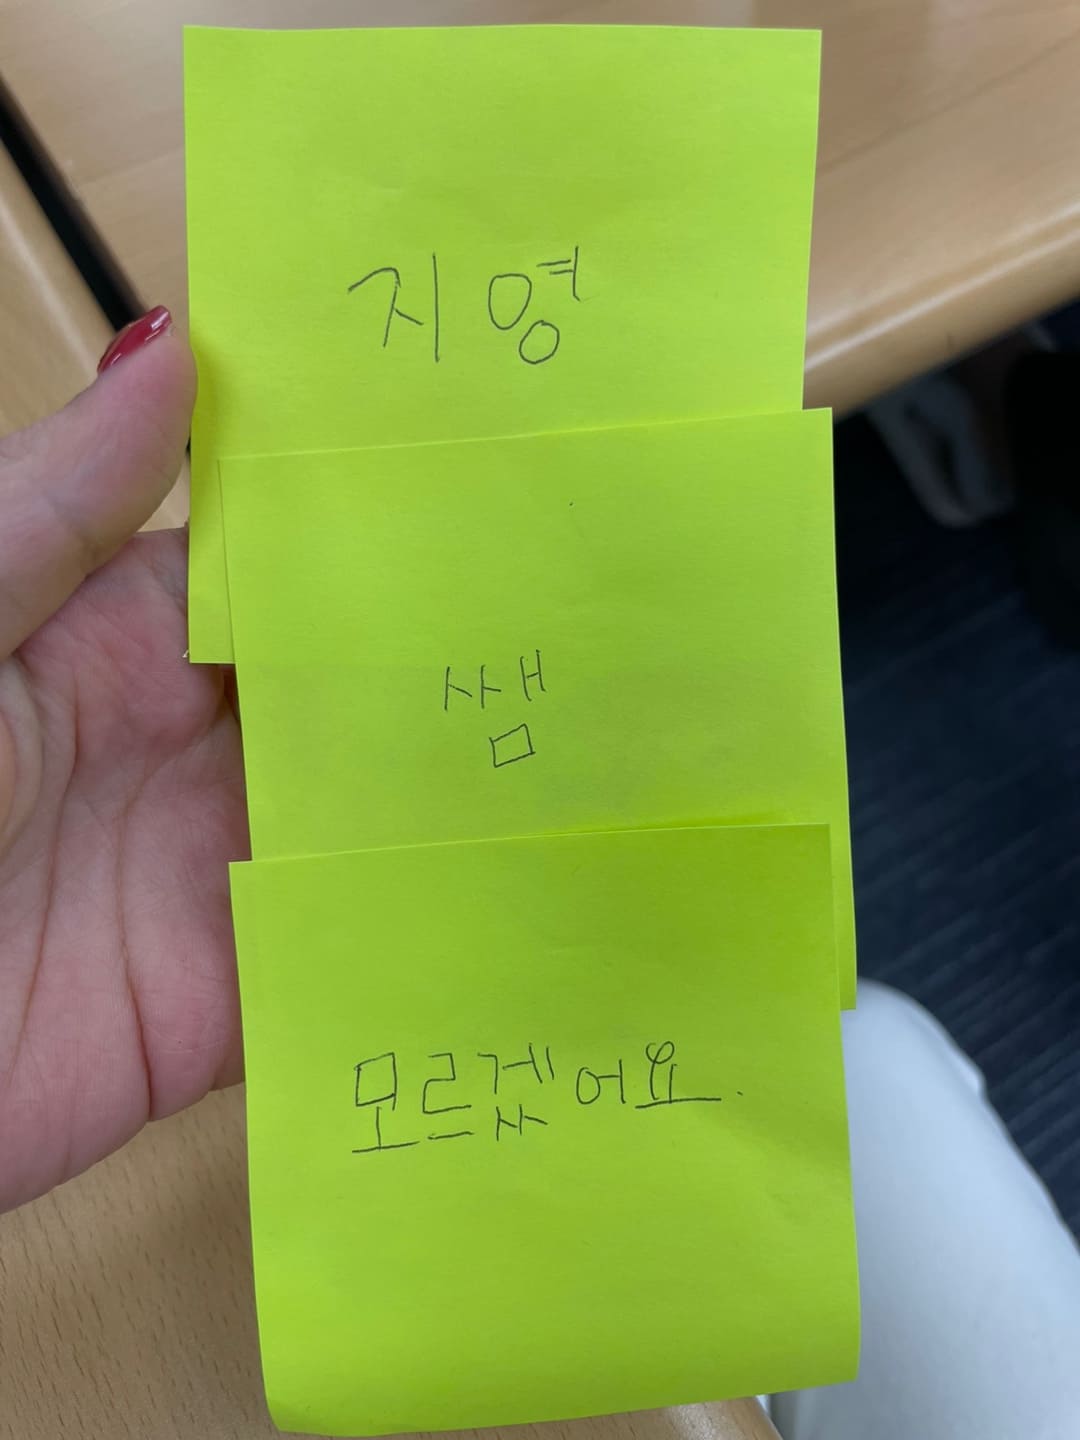 지영
샘
모르겠어요.